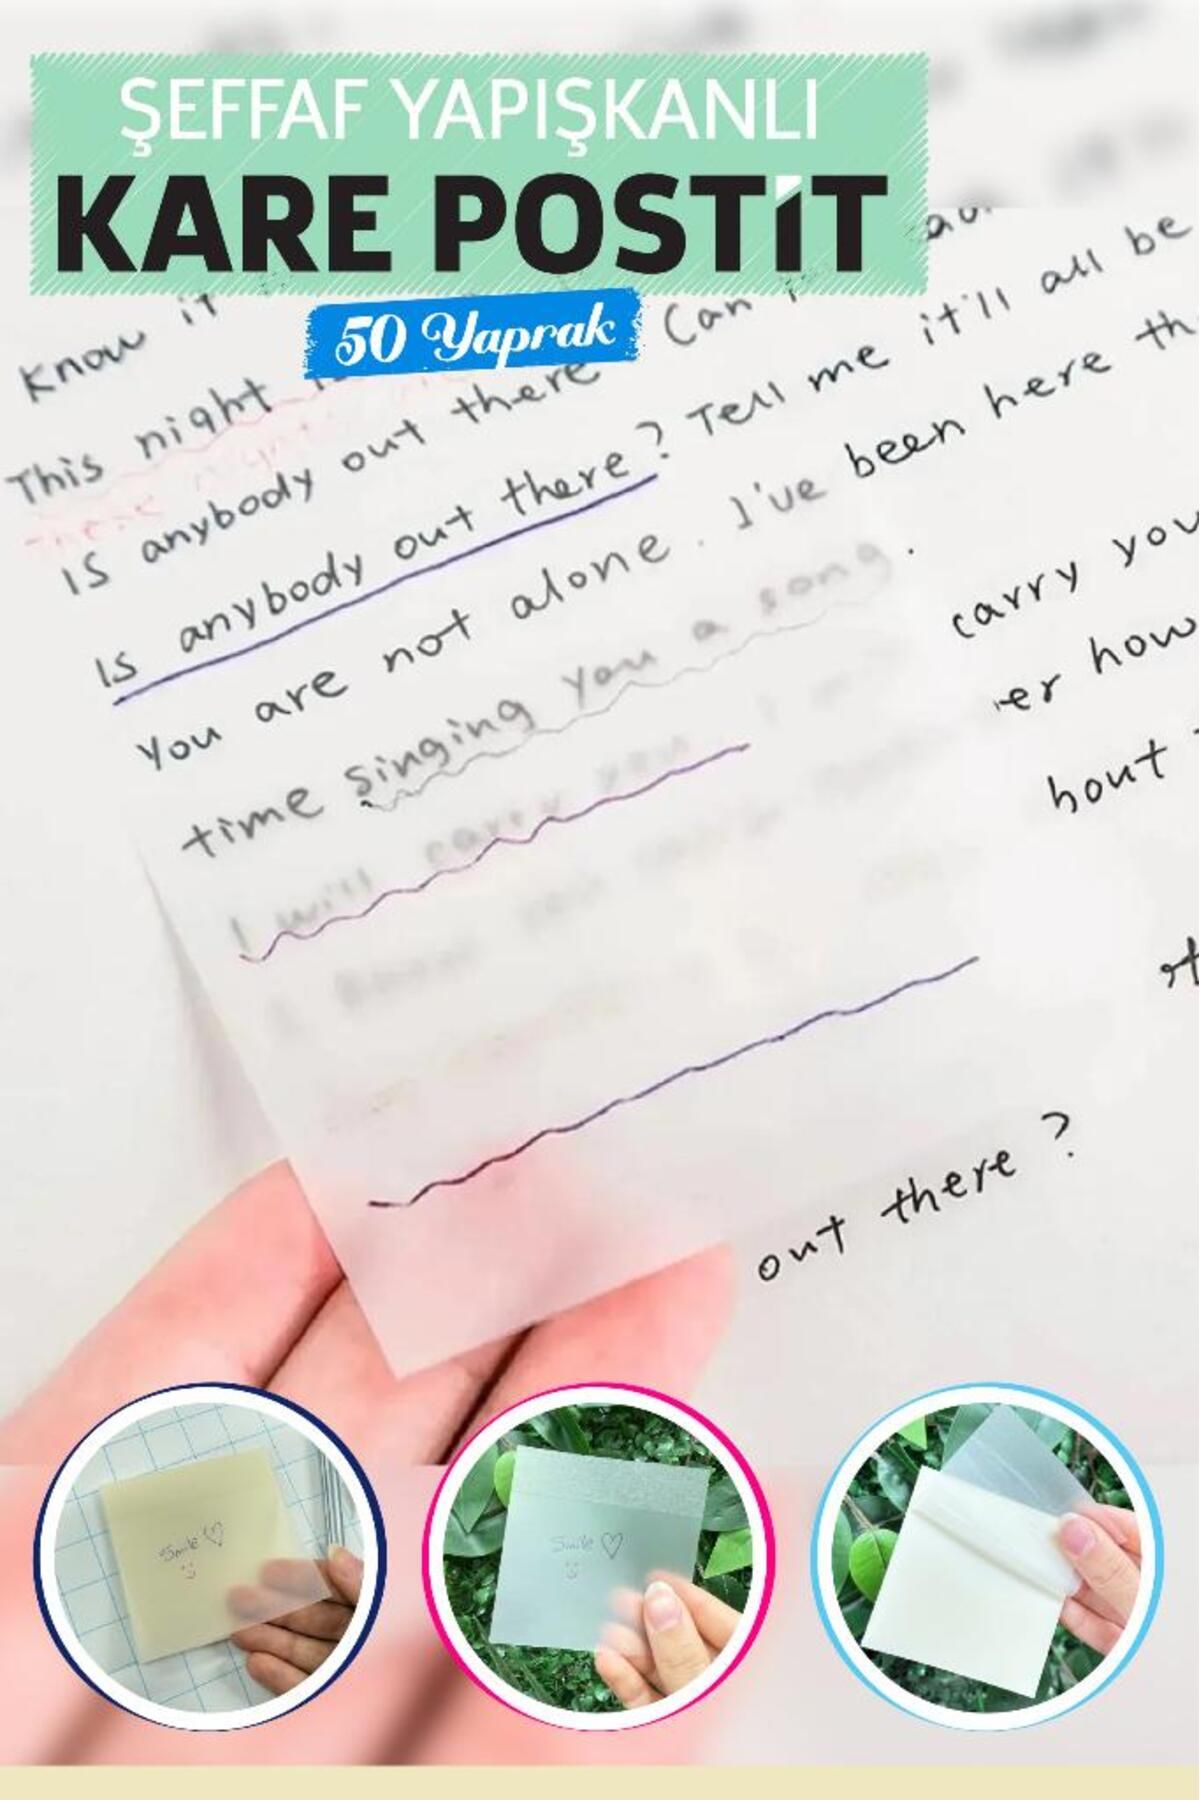 ŞEFFAF YAPIŞKANLI
KARE POSTİT
50 Yaprak
Know it
This night
Can
Is anybody out there
it'll all be
Is anybody out there? Tell me
You are not alone. I've been here th
time singing you a song.
I will carry you
carry you
er how
bout
out there?
Smile ♡
Smile ♡